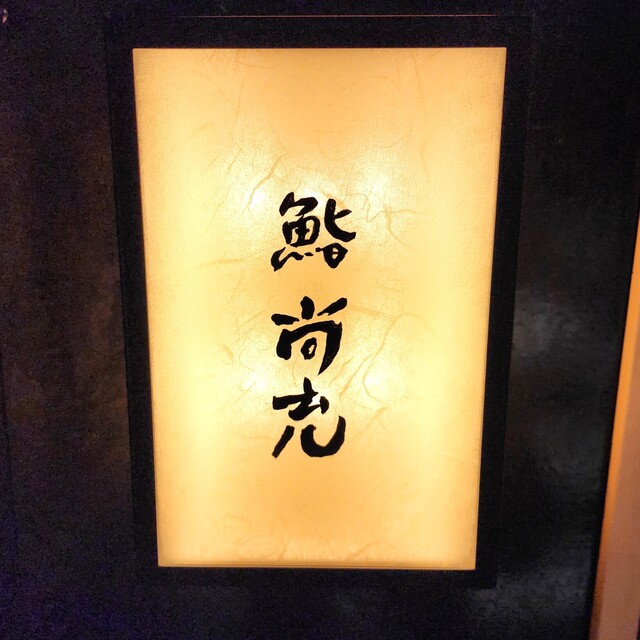 鮨 尚充